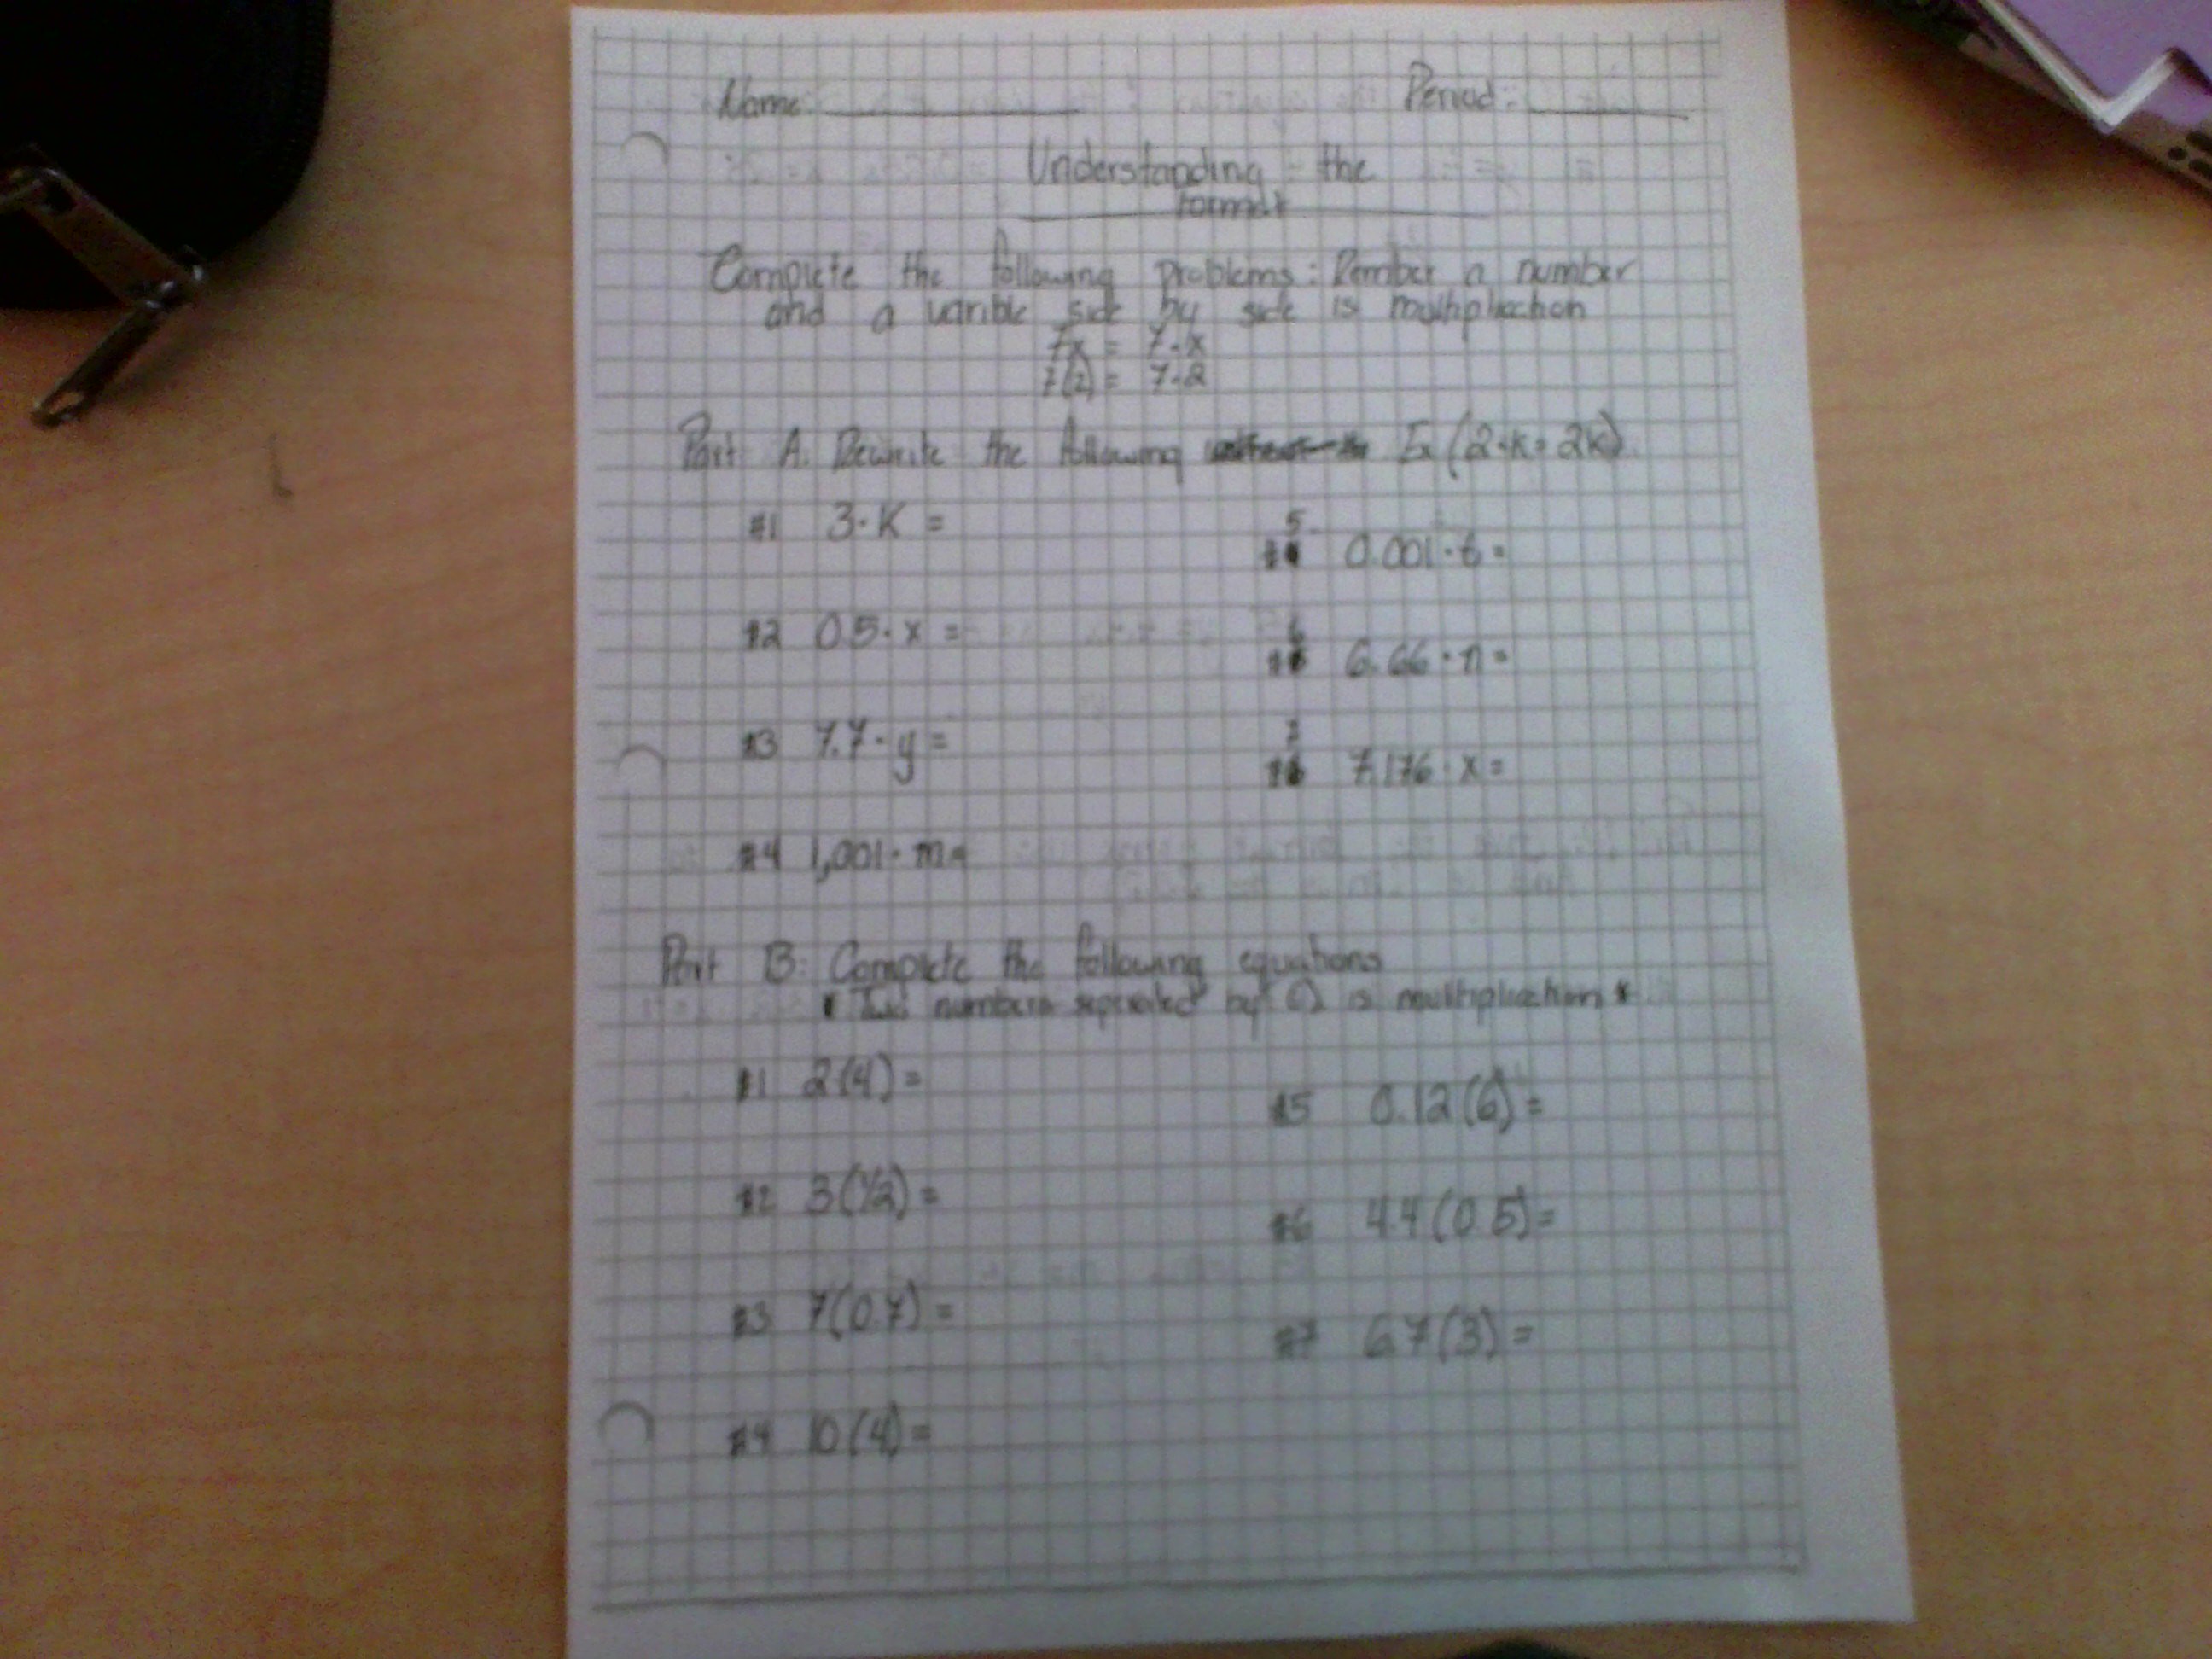 Name: Period:
Understanding the
format
Complete the following problems: Rember a number
and a varible side by side is multiplication
7x = 7·x
7(2) = 7·2
Part A. Rewrite the following Ex (2·k=2k)
#1 3·K =
#2 0.5·x =
#3 7.7·y =
#4 1,001·m=
5
# 0.001·t=
6
# 6.66·n=
7
# 7.176·x=
Part B: Complete the following equations
* Two numbers seperated by () is multiplication *
#1 2(4)=
#2 3(1/2)=
#3 7(0.7)=
#4 10(4)=
#5 0.12(6)=
#6 4.4(0.5)=
#7 6.7(3)=